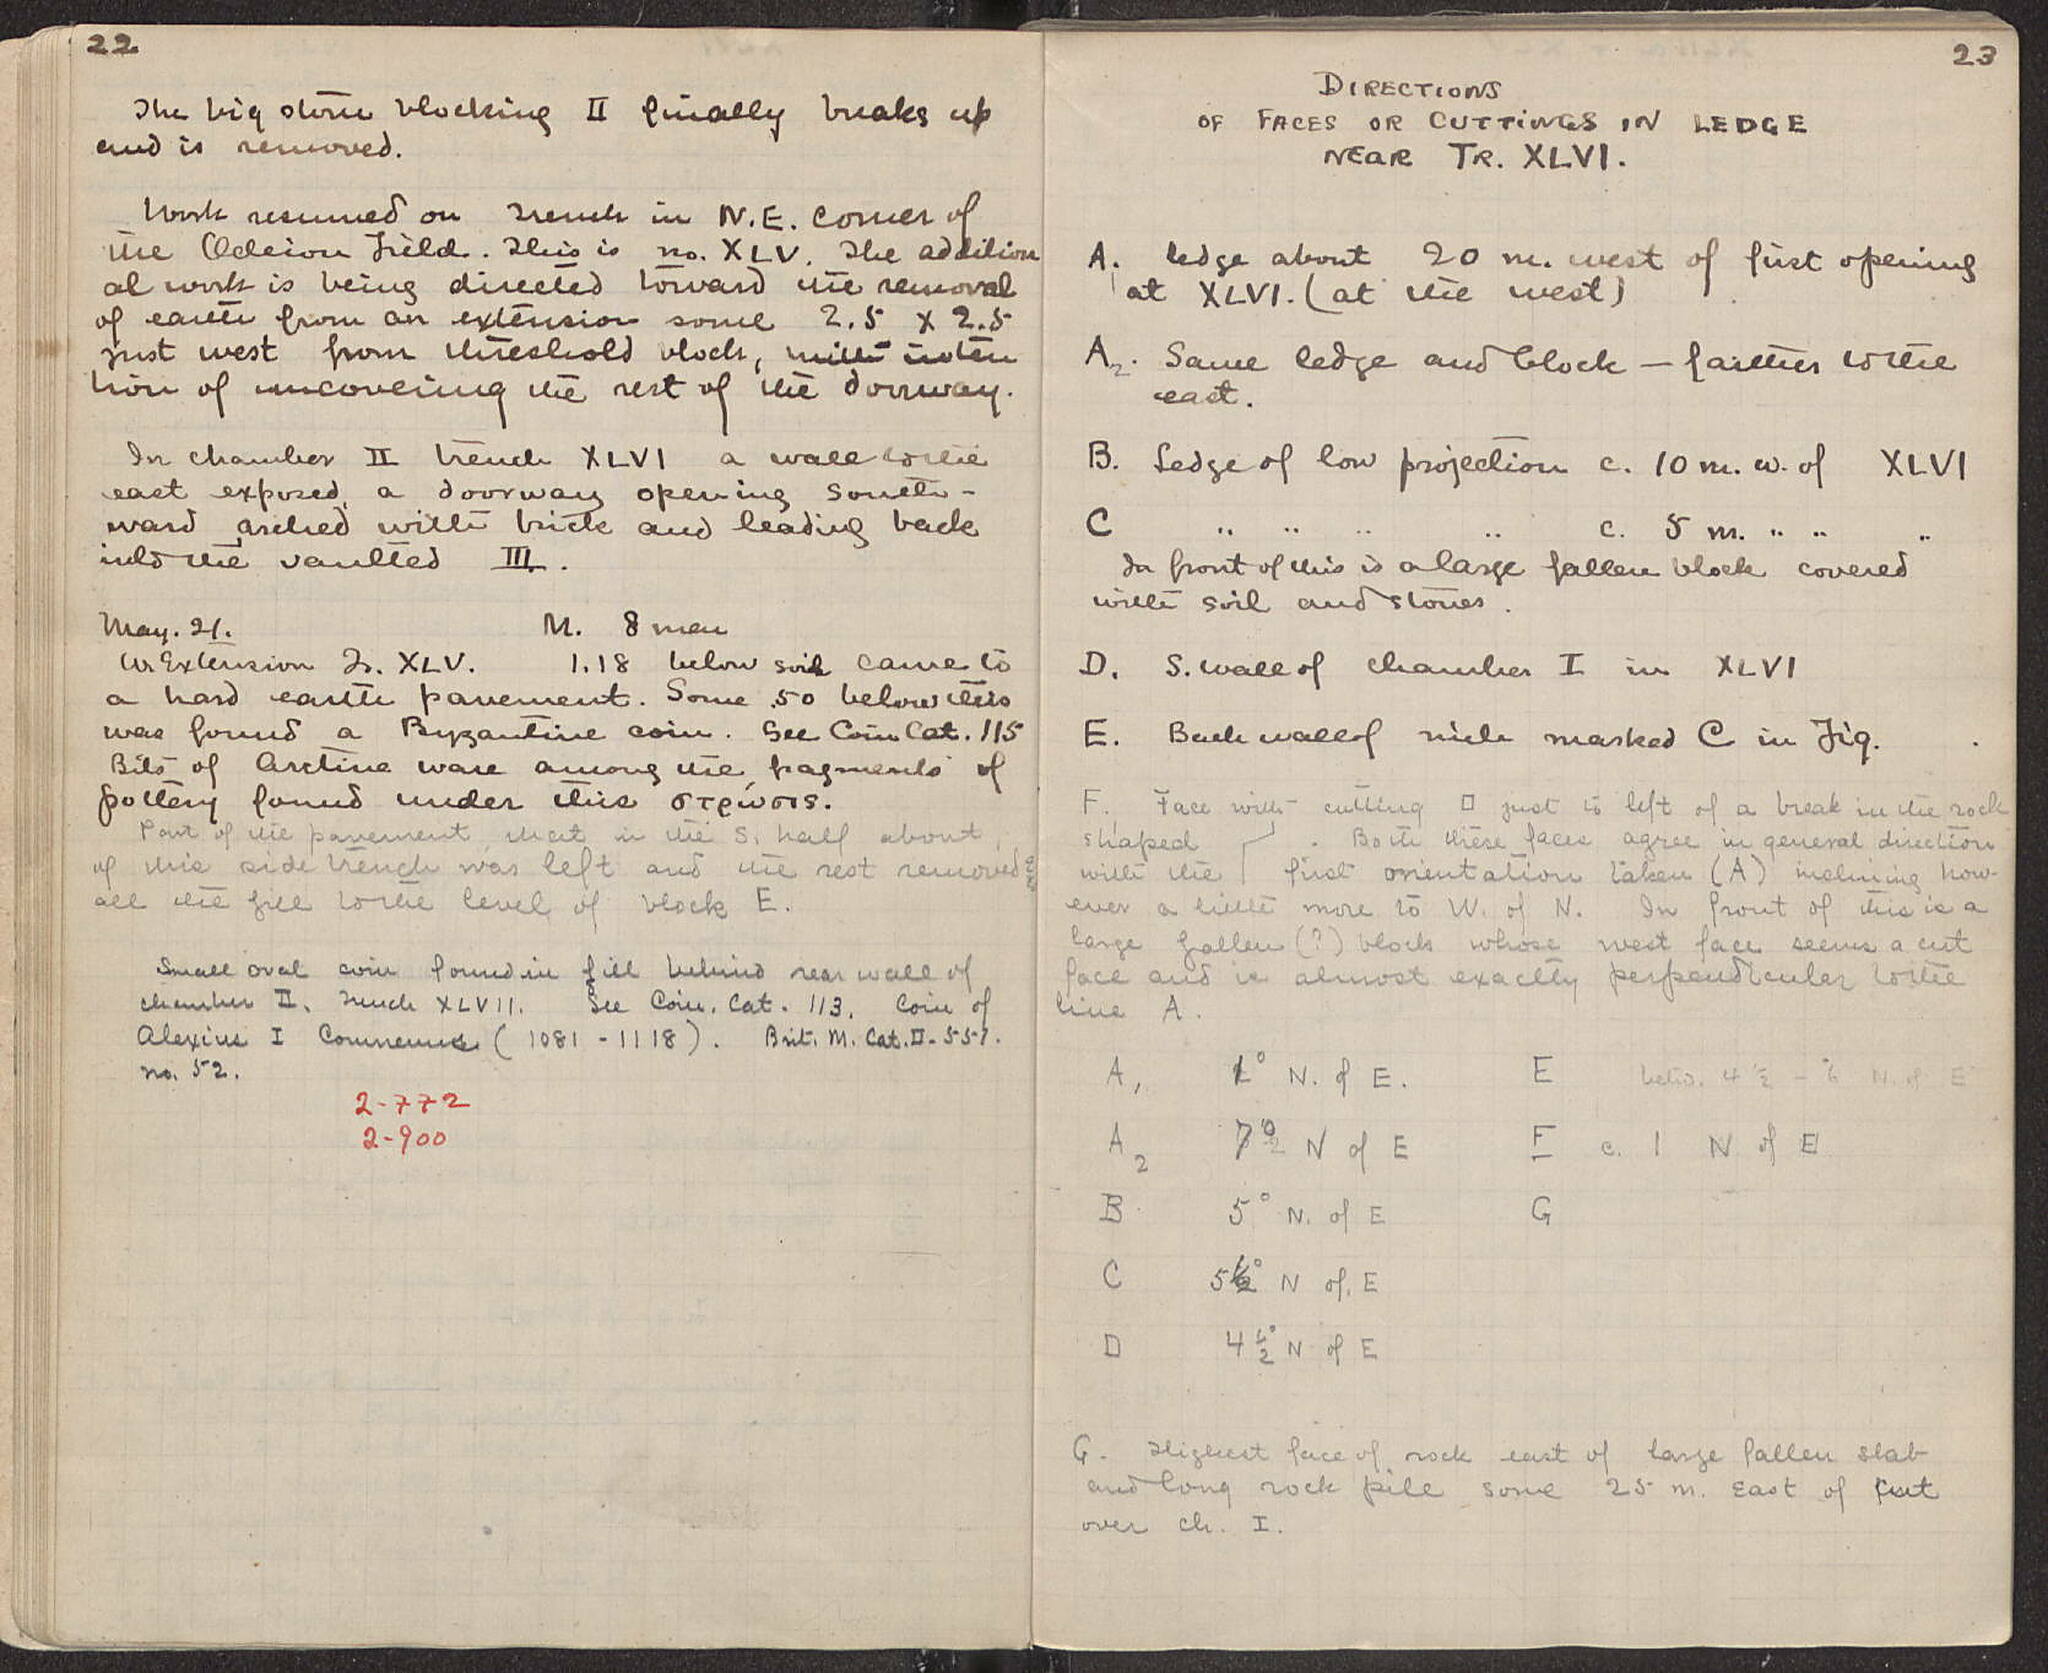 22
The big stone blocking II finally breaks up
and is removed.
Work resumed on trench in N.E. corner of
the Odeion Field. This is no. XLV. The addition
al work is being directed toward the removal
of earth from an extension some 2.5 x 2.5
just west from threshold block, with inten
tion of uncovering the rest of the doorway.
In chamber II trench XLVI a wall to the
east exposed, a doorway opening south-
ward arched with brick and leading back
into the vaulted III.
May. 21. M. 8 men
W. Extension Tr. XLV. 1.18 below soil came to
a hard earth pavement. Some .50 below this
was found a Byzantine coin. See Coin Cat. 115
Bits of Arretine ware among the fragments of
pottery found under this στρώσις.
Part of the pavement, that in the S. half about,
of this side trench was left and the rest removed
all the fill to the level of block E.
Small oval coin found in fill behind rear wall of
chamber II. Trench XLVII. See Coin. Cat. 113. Coin of
Alexius I Comnenus (1081-1118). Brit. M. Cat. II-557.
no. 52.
2-772
2-900
23
DIRECTIONS
OF FACES OR CUTTINGS IN LEDGE
NEAR TR. XLVI.
A. Ledge about 20 m. west of first opening
at XLVI. (at the west)
A2. Same ledge and block – farther to the
east.
B. Ledge of low projection c. 10 m. w. of XLVI
C " " " " c. 5 m. " " "
In front of this is a large fallen block covered
with soil and stones.
D. S. wall of chamber I in XLVI
E. Back wall of niche marked C in Fig.
F. Face with cutting □ just to left of a break in the rock
shaped . Both these faces agree in general direction
with the first orientation taken (A) inclining how-
ever a little more to W. of N. In front of this is a
large fallen (?) block whose west face seems a cut
face and is almost exactly perpendicular to the
line A.
A1 1° N. of E. E betw. 4 1/2 - 6 N. of E
A2 7 1/2° N of E F c. 1 N of E
B 5° N. of E G
C 5 1/2° N of E
D 4 1/2° N of E
G. Highest face of rock east of large fallen slab
and long rock pile some 25 m. East of cut
over ch. I.